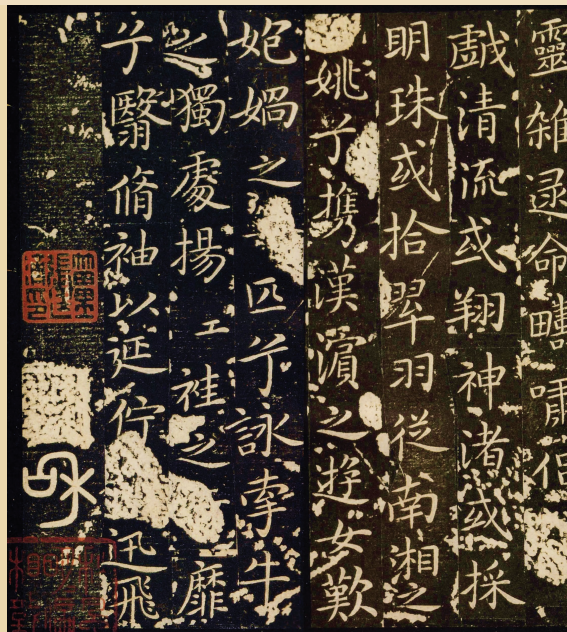 靈雜遝命疇嘯侶
戱清流或翔神渚或採
明珠或拾翠羽從南湘之
姚兮携漢濱之遊女歎
匏媧之匹兮詠牽牛
之獨處揚袿之靡
兮翳脩袖以延佇迅飛